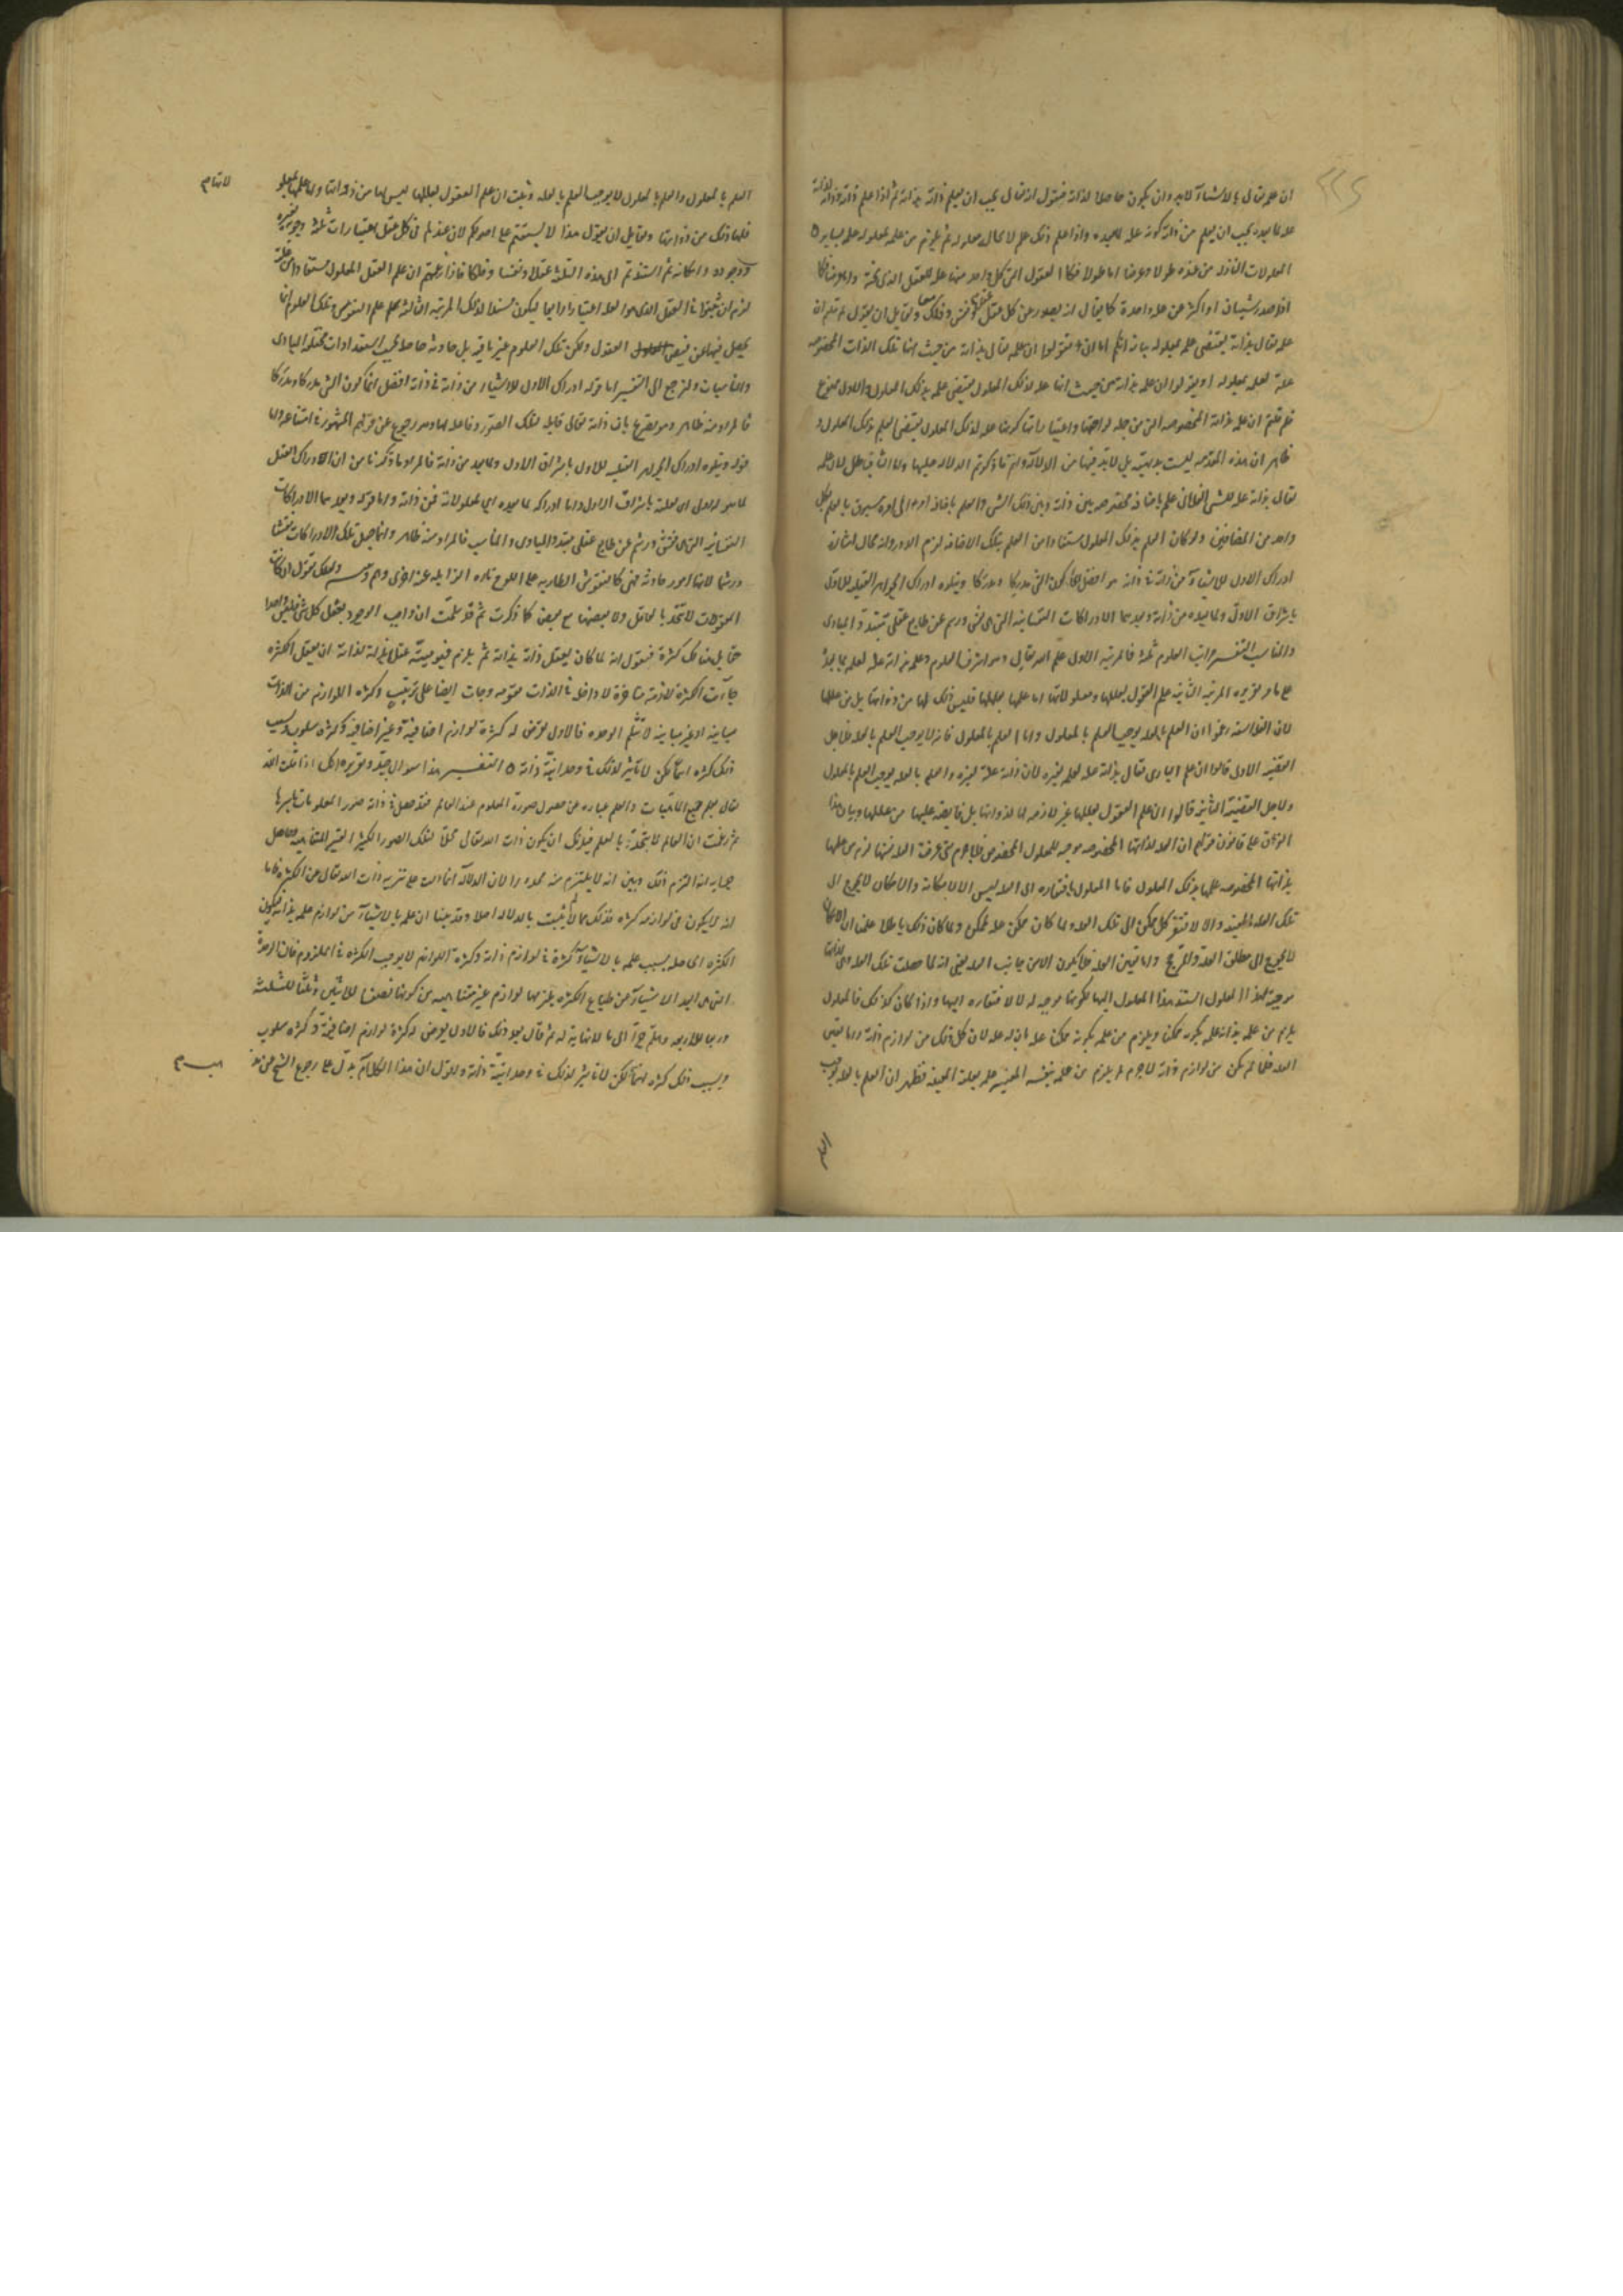 ان علمه تعالى بالاشياء لابد وان يكون حاصلا لذاته فنقول انه تعالى يجب ان يعلم ذاته بذاته ثم اذا علم ذاته وذاته لذاته
علة لما بعده يجب ان يعلم من ذاته كونه علة لما بعده واذا علم ذلك علم لا محالة معلوله ثم يلزم من علمه بمعلوله علمه بساير
المعلولات النازلة من عنده طولا وعرضا اما طولا فكا العقول التى كل واحد منها علة للعقل الذى تحته واما عرضا فكما
اذا صدر شيئان او اكثر عن علة واحدة كما يقال انه يصدر عن كل عقل عقل ونفس وفلك معا ولقايل ان يقول لم قلتم ان
علمه تعالى بذاته يقتضى علمه بمعلوله بيانه انكم اما ان تقولوا ان علمه تعالى بذاته من حيث انها تلك الذات المخصوصة
علة لعلمه بمعلوله او يقولوا ان علمه بذاته من حيث انها علة لذلك المعلول يقتضى علمه بذلك المعلول والاول ممنوع
فلم قلتم ان علمه بذاته المخصوصة التى من جملة لواحقها واعتباراتها كونها علة لذلك المعلول يقتضى العلم بذلك المعلول و
ظاهر ان هذه المقدمة ليست بديهية بل لابد فيها من الدلالة وانتم ما ذكرتم الدلالة عليها واما الثانى باطل لان علمه
تعالى بذاته علة للشى الفلانى علم باضافة مخصوصة بين ذاته وبين ذلك الشى والعلم باضافة امر الى امر مسبوق بالعلم بكل
واحد من المضافين ولو كان العلم بذلك المعلول مستفادا من العلم بتلك الاضافة لزم الدور وانه محال اشارة
ادراك الاول للاشياء من ذاته فى ذاته هو افضل انحاء كون الشى مدركا ومدركا ويتلوه ادراك الجواهر العقلية للاول
باشراق الاول ولما بعده من ذاته وبعدهما الادراكات النفسانية التى هى نقش ورسم عن طابع عقلى متبدد المبادى
والمناسب التفسير مراتب العلوم ثلثة فالمرتبة الاولى علم الله تعالى وهو اشرف العلوم وعلمه بذاته علة لعلمه بما بعده
على ما مر تقريره المرتبة الثانية علم العقول بعللها ومعلولاتها اما علمها بعللها فليس ذلك لها من ذواتها بل من عللها
لان الفلاسفة زعموا ان العلم بالعلة يوجب العلم بالمعلول واما العلم بالمعلول فانه لا يوجب العلم بالعلة فلاجل
القضية الاولى قالوا ان علم البارى تعالى بذاته علة لعلمه بغيره لان ذاته علة لغيره والعلم بالعلة يوجب العلم بالمعلول
ولاجل القضية الثانية قالوا ان علم العقول بعللها غير لازمة لها لذواتها بل فايضة عليها من عللها وبيان هذا
الفرق على قانون قولهم ان العلة لذاتها المخصوصة موجبة للمعلول المخصوص فلاجرم متى عرفت العلة نفسها لزم من علمها
بذاتها المخصوصة علمها بذلك المعلول فاما المعلول فافتقاره الى العلة ليس الا لامكانه والامكان لا يحوج الى
تلك العلة المعينة والا لافتقر كل ممكن الى تلك العلة ولما كان ممكن علة لممكن ولما كان ذلك باطلا علمنا ان الامكان
لا يحوج الى مطلق العلة والمرجح واما تعين العلة فلا يكون الا من جانب العلة يعنى انه لما حصلت تلك العلة وهى لذاتها
موجبة لهذا المعلول استند هذا المعلول اليها لكونها موجبة له لا لافتقاره اليها واذا كان كذلك فالمعلول
يلزم من علمه بذاته علمه بكونه ممكنا ويلزم من علمه بكونه ممكنا علمه بان له علة لان كل ذلك من لوازم ذاته واما تعين
العلة فلما لم يكن من لوازم ذاته لاجرم لم يلزم من علمه بنفسه المعينة علمه بعلته المعينة فظهر ان العلم بالعلة يوجب
العلم
العلم بالمعلول والعلم بالمعلول لا يوجب العلم بالعلة وثبت ان علم العقول بعللها ليس لها من ذواتها واما علمها بمعلو
لاتها
فلها ذلك من ذواتها ولقايل ان يقول هذا لا يستقيم على اصولكم لان عندكم فى كل عقل اعتبارات ثلثة وجوبه بغيره
ووجوده وامكانه ثم اسندتم الى هذه الثلثة عقلا ونفسا وفلكا فاذا زعمتم ان علم العقل المعلول مستفاد من علته
لزم ان تثبتوا فى العقل الذى هو العلة اعتبارا رابعا ليكون مسندا لذلك المرتبة الثالثة علم النفوس وتلك العلوم انما
يحصل فيها من فيض العقول ولكن تلك العلوم غير باقية بل حادثة حاصلة بحسب استعدادات مختلفة المبادى
والمناسبات ولنرجع الى التفسير اما قوله ادراك الاول للاشياء من ذاته فى ذاته افضل انحاء كون الشى مدركا ومدركا
فالمراد منه ظاهر وهو تصريح بان ذاته تعالى قابلة لتلك الصور وفاعلة لها وهو رجوع عن قولهم المشهور فى امتناعه واما
قوله ويتلوه ادراك الجواهر العقلية للاول باشراق الاول ولما بعده من ذاته فالمراد ما ذكرنا من ان ادراك العقل
لما هو الاول اى لعلته باشراق الاول واما ادراكه لما بعده اى لمعلولاته فمن ذاته واما قوله وبعدهما الادراكات
النفسانية التى هى نقش ورسم عن طابع عقلى متبدد المبادى والمناسب فالمراد منه ظاهر وانما جعل تلك الادراكات نقشا
ورسما لانها امور حادثة فهى كالنقوش الطارية على اللوح تارة الزايلة عنه اخرى وهم وتنبيه ولعلك تقول ان كانت
المعقولات لا تتحد بالعاقل ولا بعضها مع بعض كما ذكرت ثم قد سلمت ان واجب الوجود يعقل كل شى فليس واحدا
حقا بل هناك كثرة فنقول انه لما كان يعقل ذاته بذاته ثم يلزم قيوميته عقلا بذاته لذاته ان يعقل الكثرة
جاءت الكثرة لازمة متاخرة لا داخلة فى الذات مقومة وجات ايضا على ترتيب وكثرة اللوازم من الذات
مباينة او غير مباينة لا تثلم الوحدة فالاول تعرض له كثرة لوازم اضافية وغير اضافية وكثرة سلوب وبسبب
ذلك كثرة اسماء لكن لا تاثير لذلك فى وحدانية ذاته التفسير هذا سوال جيد وتقريره انك اذا قلت الله
تعالى يعلم جميع الماهيات والعلم عبارة عن حصول صورة المعلوم عند العالم فقد حصل فى ذاته صور المعلومات باسرها
ثم زعمت ان العالم لا يتحد بالعلم فيلزمك ان يكون ذات الله تعالى محلا لتلك الصور الكثيرة الغير المتناهية وحاصل
جوابه انه التزم ذلك وبين انه لا يلتزم منه محذورا لان الدلالة انما دلت على تنزيه ذات الله تعالى عن الكثرة فاما
انه لا يكون فى لوازمه كثرة فذلك مما لم يثبت بالدلالة اصلا وقد بينا ان علمه بالاشياء من لوازم علمه بذاته فيكون
الكثرة الحاصلة بسبب علمه بالاشياء كثرة فى لوازم ذاته وكثرة اللوازم لا يوجب الكثرة فى الملزوم فان الوحدة
التى هى ابعد الاشياء عن طباع الكثرة يلزمها لوازم غير متناهية من كونها نصفا للاثنين وثلثا للثلثة
وربعا للاربعة وهلم جرا الى ما لا نهاية له ثم قال بعد ذلك فالاول يعرض له كثرة لوازم اضافية وكثرة سلوب
وبسبب ذلك كثرة اسماء لكن لا تاثير لذلك فى وحدانية ذاته واقول ان هذا الكلام يدل على رجوع الشيخ عن مذ